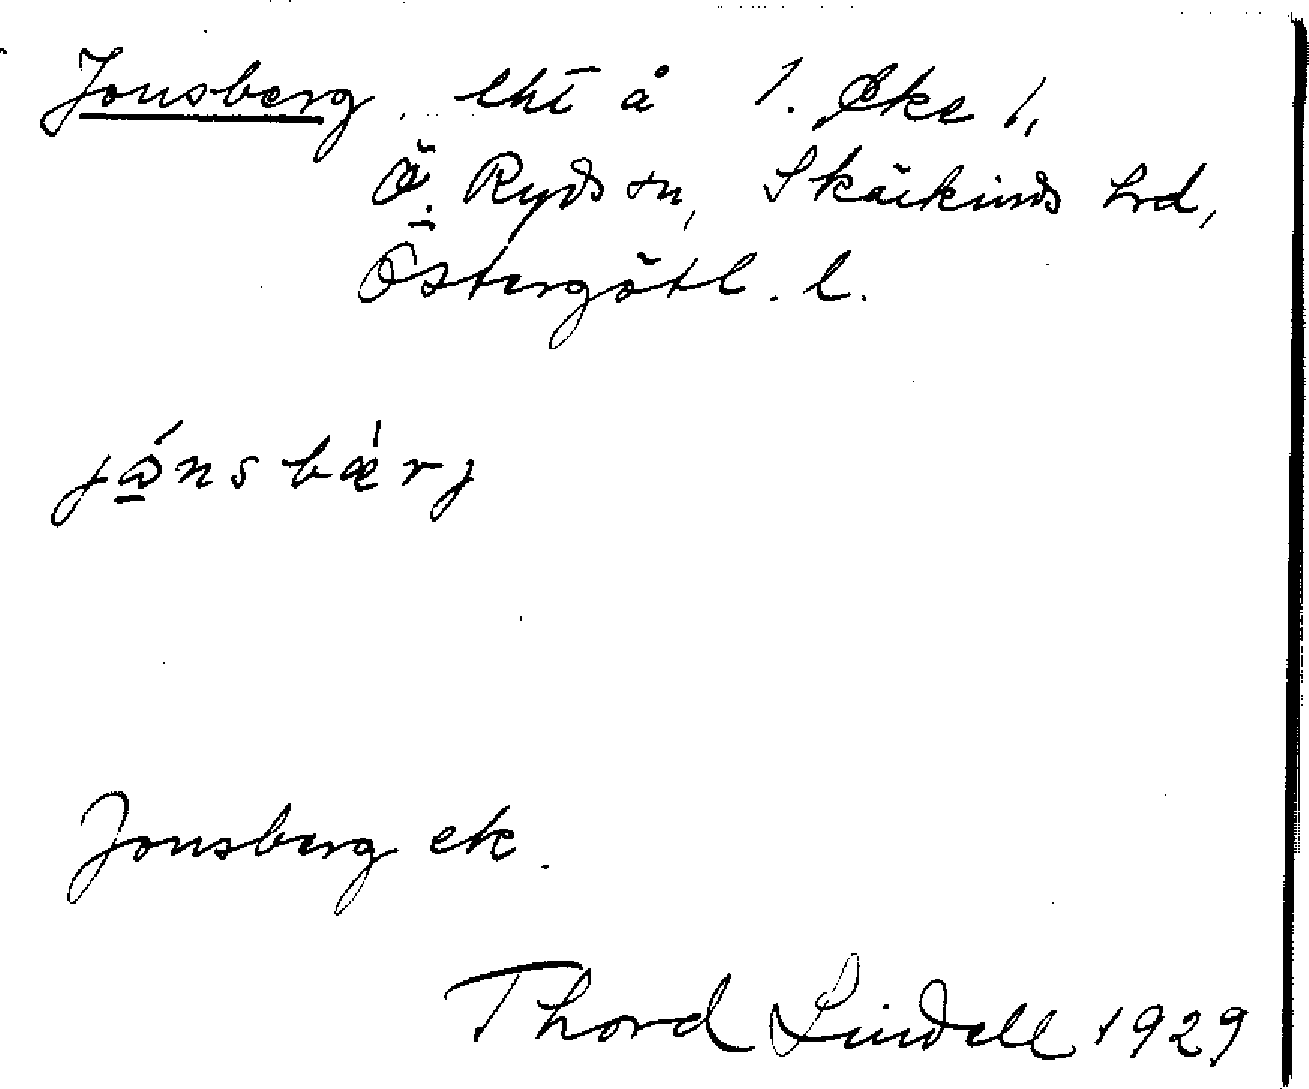 Jonsberg, lht å 1. Eke 1,
Ö. Ryds sn, Skärkinds hrd,
Östergötl. l.
jónsbærj
Jonsberg ek.
Thord Lindell 1929